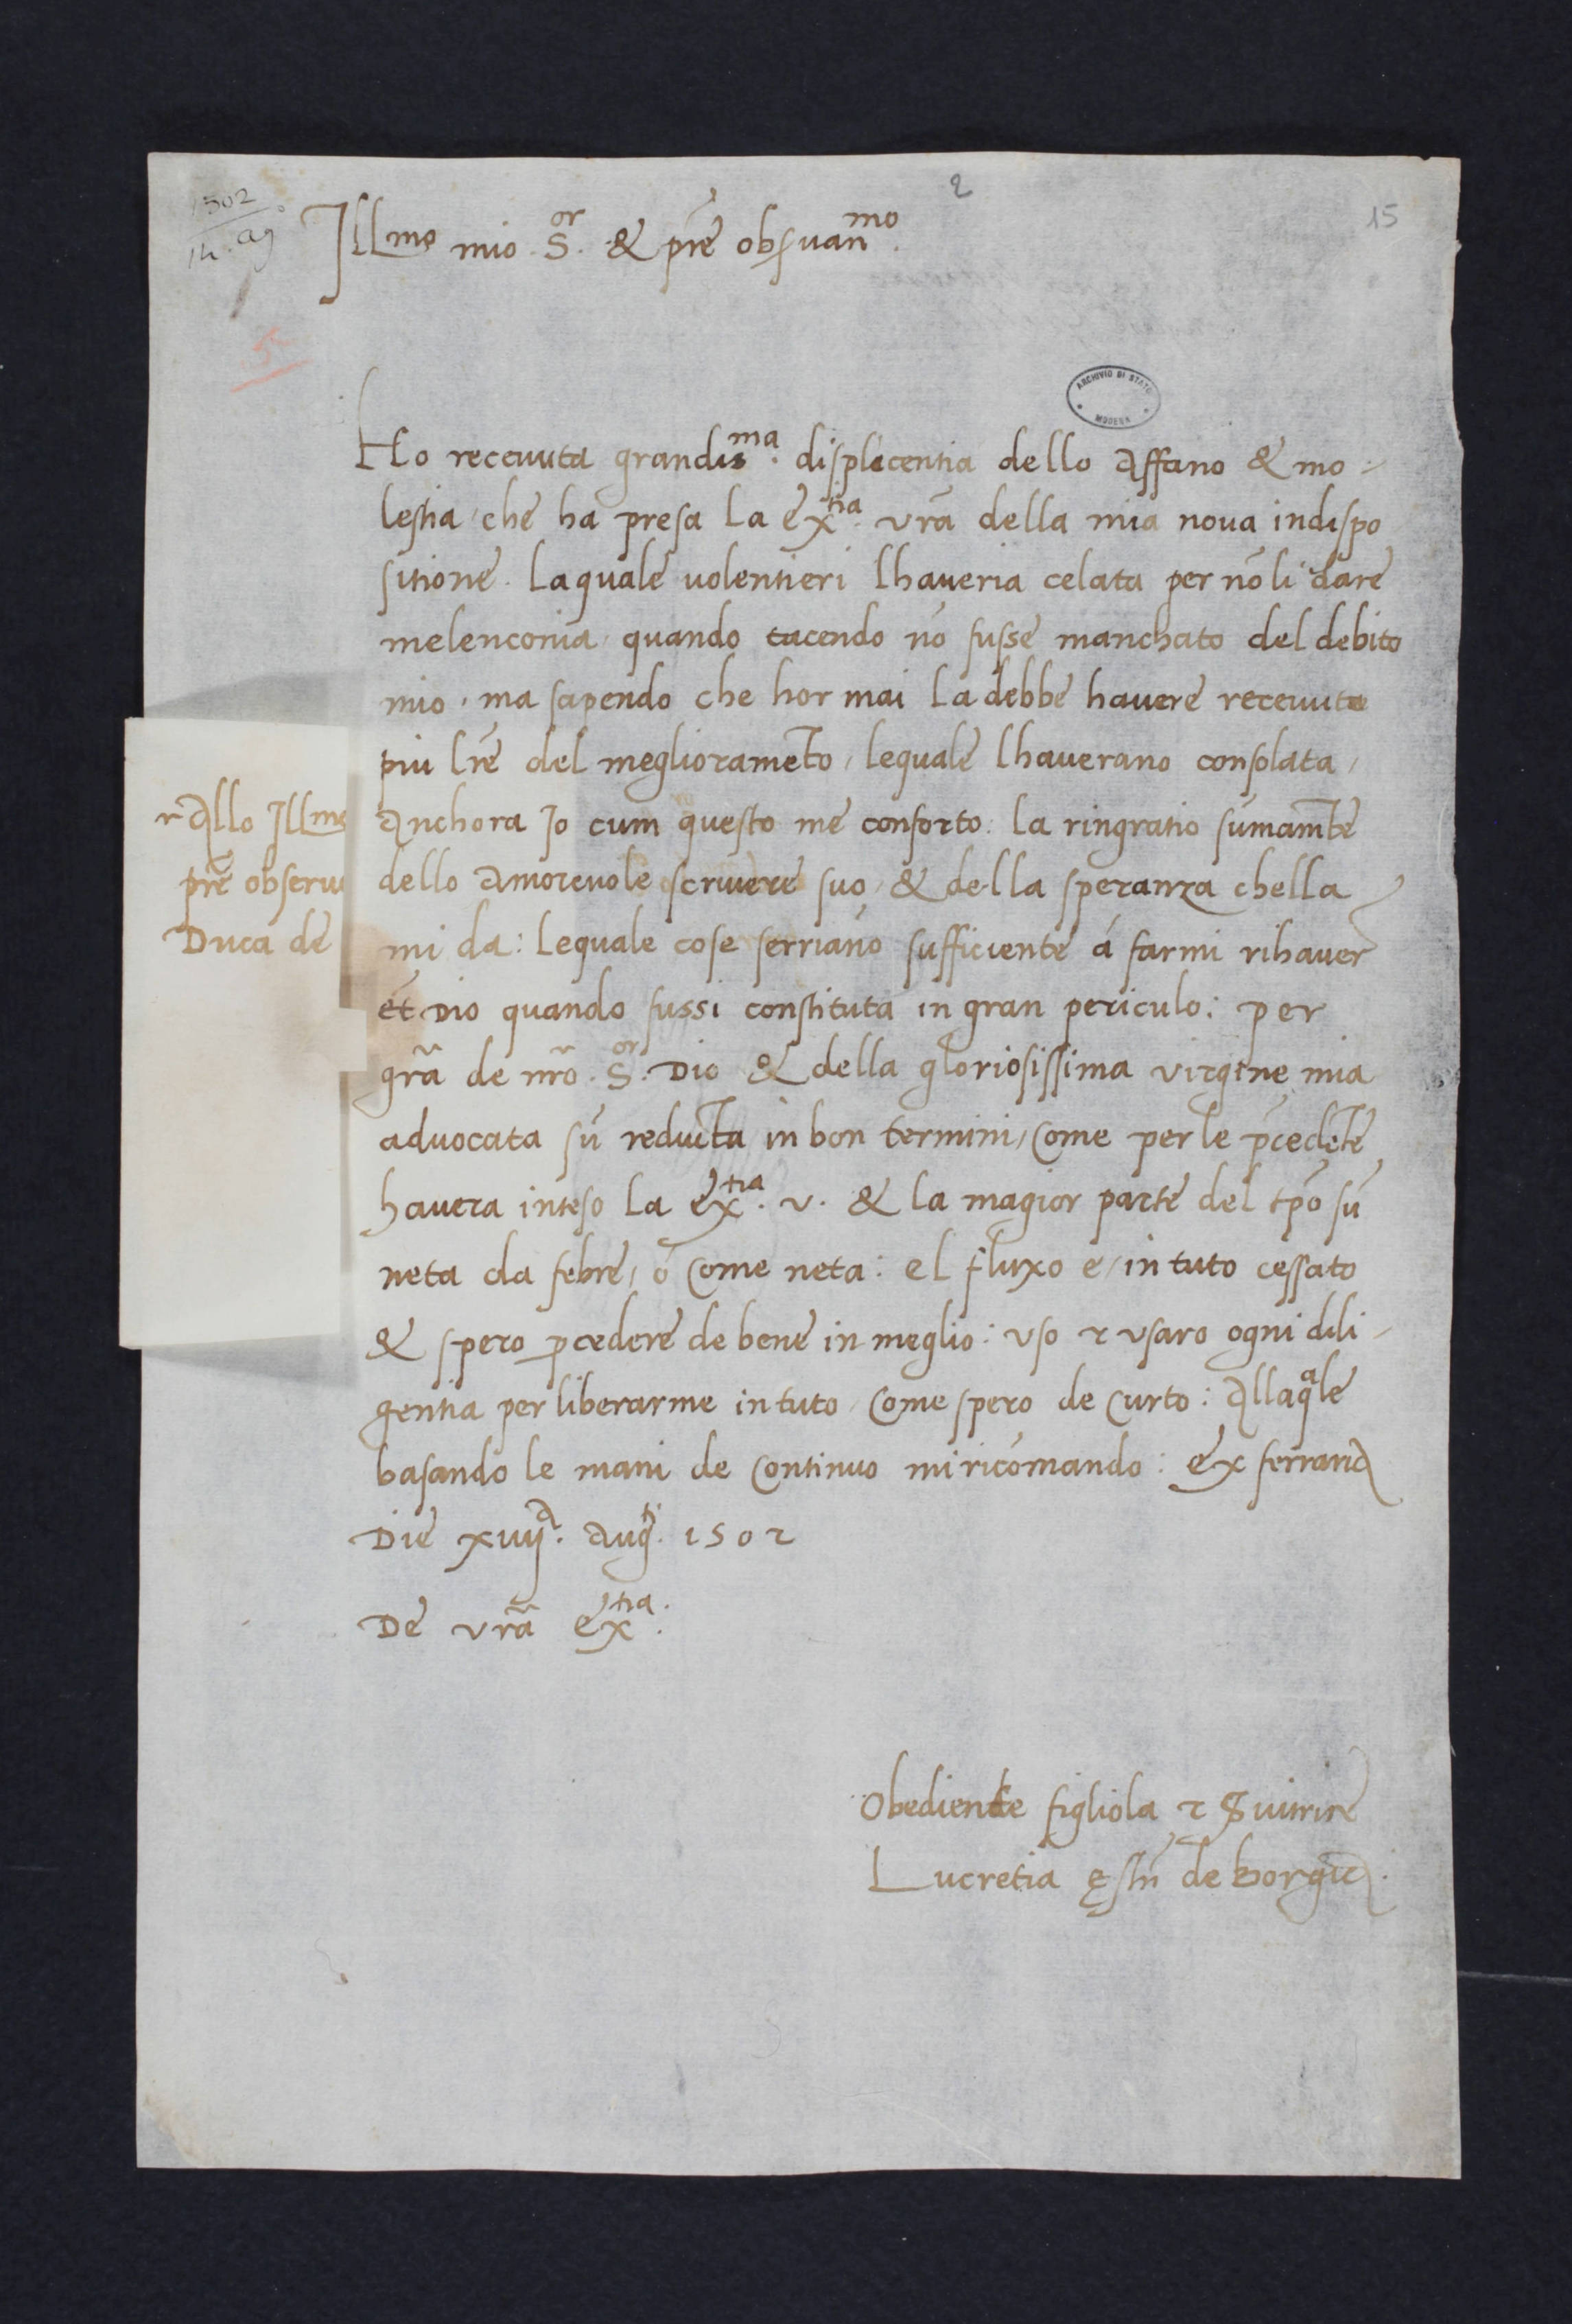 2
15
1502
14. ag.º
5
Ill.mo mio S.or & pr̃e obs̃uan.mo
ARCHIVIO DI STATO
MODENA
Ho receuuta grandis.ma displicentia dello Affano & mo-
lestia che ha presa la ex.tia vr̃a della mia noua indispo
sitione. laquale uolentieri lhaueria celata per nõ li dare
melenconia, quando tacendo nõ fusse manchato del debito
mio. ma sapendo che hor mai la debbe hauere receuute
piu lr̃e del meglioramẽto, lequale lhauerano consolata,
Anchora Io cum questo me conforto: la ringratio sũmamẽte
dello Amoreuole scriuere suo, & della speranza chella
mi da: lequale cose serriano sufficiente á farmi rihauer
et Dio quando fussi constituta in gran periculo: per
gr̃a de nr̃o S.or Dio & della gloriosissima virgine mia
aduocata sũ reducta in bon termini, Come per le p̃cedẽte
hauera inteso la ex.tia v. & la magior parte del tp̃o sũ
neta da febre, o Come neta: el fluxo e, in tuto cessato
& spero ꝓcedere de bene in meglio: vso ⁊ vsaro ogni dili-
gentia per liberarme in tuto, Come spero de Curto: Allaqale
basando le mani de Continuo mi ricõmando: ex ferraria
Die xiiij.a Aug.ti 1502
De vr̃a ex.tia.
Obediente figliola ⁊ Ꝣuitrice
Lucretia ęstñ de Borgia.
Allo Ill.mo
pr̃e obseru
Duca de